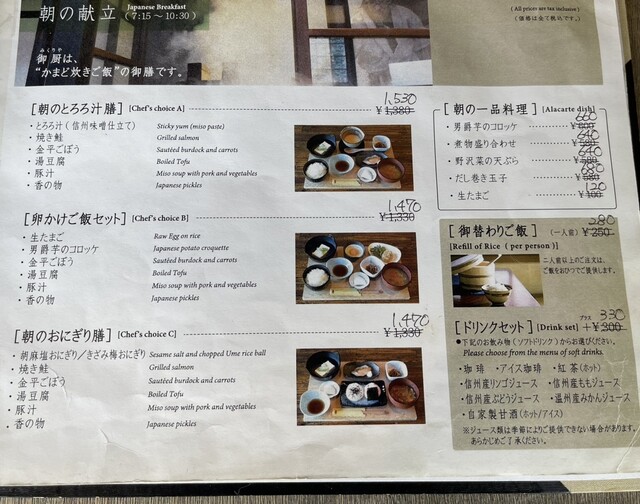 朝の献立 Japanese Breakfast (7:15〜10:30)
(All prices are tax inclusive)
(価格は全て税込です。)
みくりや
御厨は、
“かまど炊きご飯”の御膳です。
[朝のとろろ汁膳] [Chef's choice A] 1,530 ¥1,380
・とろろ汁(信州味噌仕立て) Sticky yum (miso paste)
・焼き鮭 Grilled salmon
・金平ごぼう Sautéed burdock and carrots
・湯豆腐 Boiled Tofu
・豚汁 Miso soup with pork and vegetables
・香の物 Japanese pickles
[卵かけご飯セット] [Chef's choice B] 1,470 ¥1,330
・生たまご Raw Egg on rice
・男爵芋のコロッケ Japanese potato croquette
・金平ごぼう Sautéed burdock and carrots
・湯豆腐 Boiled Tofu
・豚汁 Miso soup with pork and vegetables
・香の物 Japanese pickles
[朝のおにぎり膳] [Chef's choice C] 1,470 ¥1,330
・胡麻塩おにぎり/きざみ梅おにぎり Sesame salt and chopped Ume rice ball
・焼き鮭 Grilled salmon
・金平ごぼう Sautéed burdock and carrots
・湯豆腐 Boiled Tofu
・豚汁 Miso soup with pork and vegetables
・香の物 Japanese pickles
[朝の一品料理] [Alacarte dish]
・男爵芋のコロッケ 660
・煮物盛り合わせ 640
・野沢菜の天ぷら 640
・だし巻き玉子 680
・生たまご 120 ¥100
[御替わりご飯] (一人前) 280 ¥250
[Refill of Rice (per person)]
二人前以上のご注文は、
ご飯をおひつでご提供します。
[ドリンクセット] [Drink set] プラス 330 +¥300
●下記のお飲み物(ソフトドリンク)からお選びください。
Please choose from the menu of soft drinks.
・珈琲 ・アイス珈琲 ・紅茶(ホット)
・信州産リンゴジュース ・信州産ももジュース
・信州産ぶどうジュース ・温州産みかんジュース
・自家製甘酒(ホット/アイス)
※ジュース類は季節によりご提供できない場合があります。
あらかじめご了承ください。